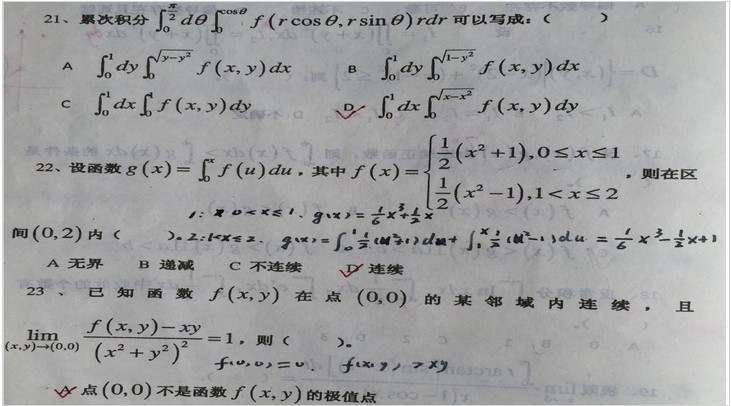 21、累次积分 ∫₀^{π/2} dθ ∫₀^{cosθ} f(r cosθ, r sinθ) r dr 可以写成：（ ）
A ∫₀¹ dy ∫₀^{√(y−y²)} f(x, y) dx B ∫₀¹ dy ∫₀^{√(1−y²)} f(x, y) dx
C ∫₀¹ dx ∫₀¹ f(x, y) dy D ∫₀¹ dx ∫₀^{√(x−x²)} f(x, y) dy
22、设函数 g(x) = ∫₀ˣ f(u) du，其中 f(x) = { 1/2 (x²+1), 0 ≤ x ≤ 1
1/2 (x²−1), 1 < x ≤ 2 ，则在区
1: 0<x≤1. g(x) = 1/6 x³ + 1/2 x
间 (0, 2) 内（ ）。 2: 1<x≤2. g(x) = ∫₀¹ 1/2 (u²+1) du + ∫₁ˣ 1/2 (u²−1) du = 1/6 x³ − 1/2 x + 1
A 无界 B 递减 C 不连续 D 连续
23、已知函数 f(x, y) 在点 (0,0) 的某邻域内连续，且
lim_{(x,y)→(0,0)} (f(x, y) − xy) / (x² + y²)² = 1，则（ ）。
f(0,0)=0. f(x,y) > xy
A 点 (0,0) 不是函数 f(x, y) 的极值点